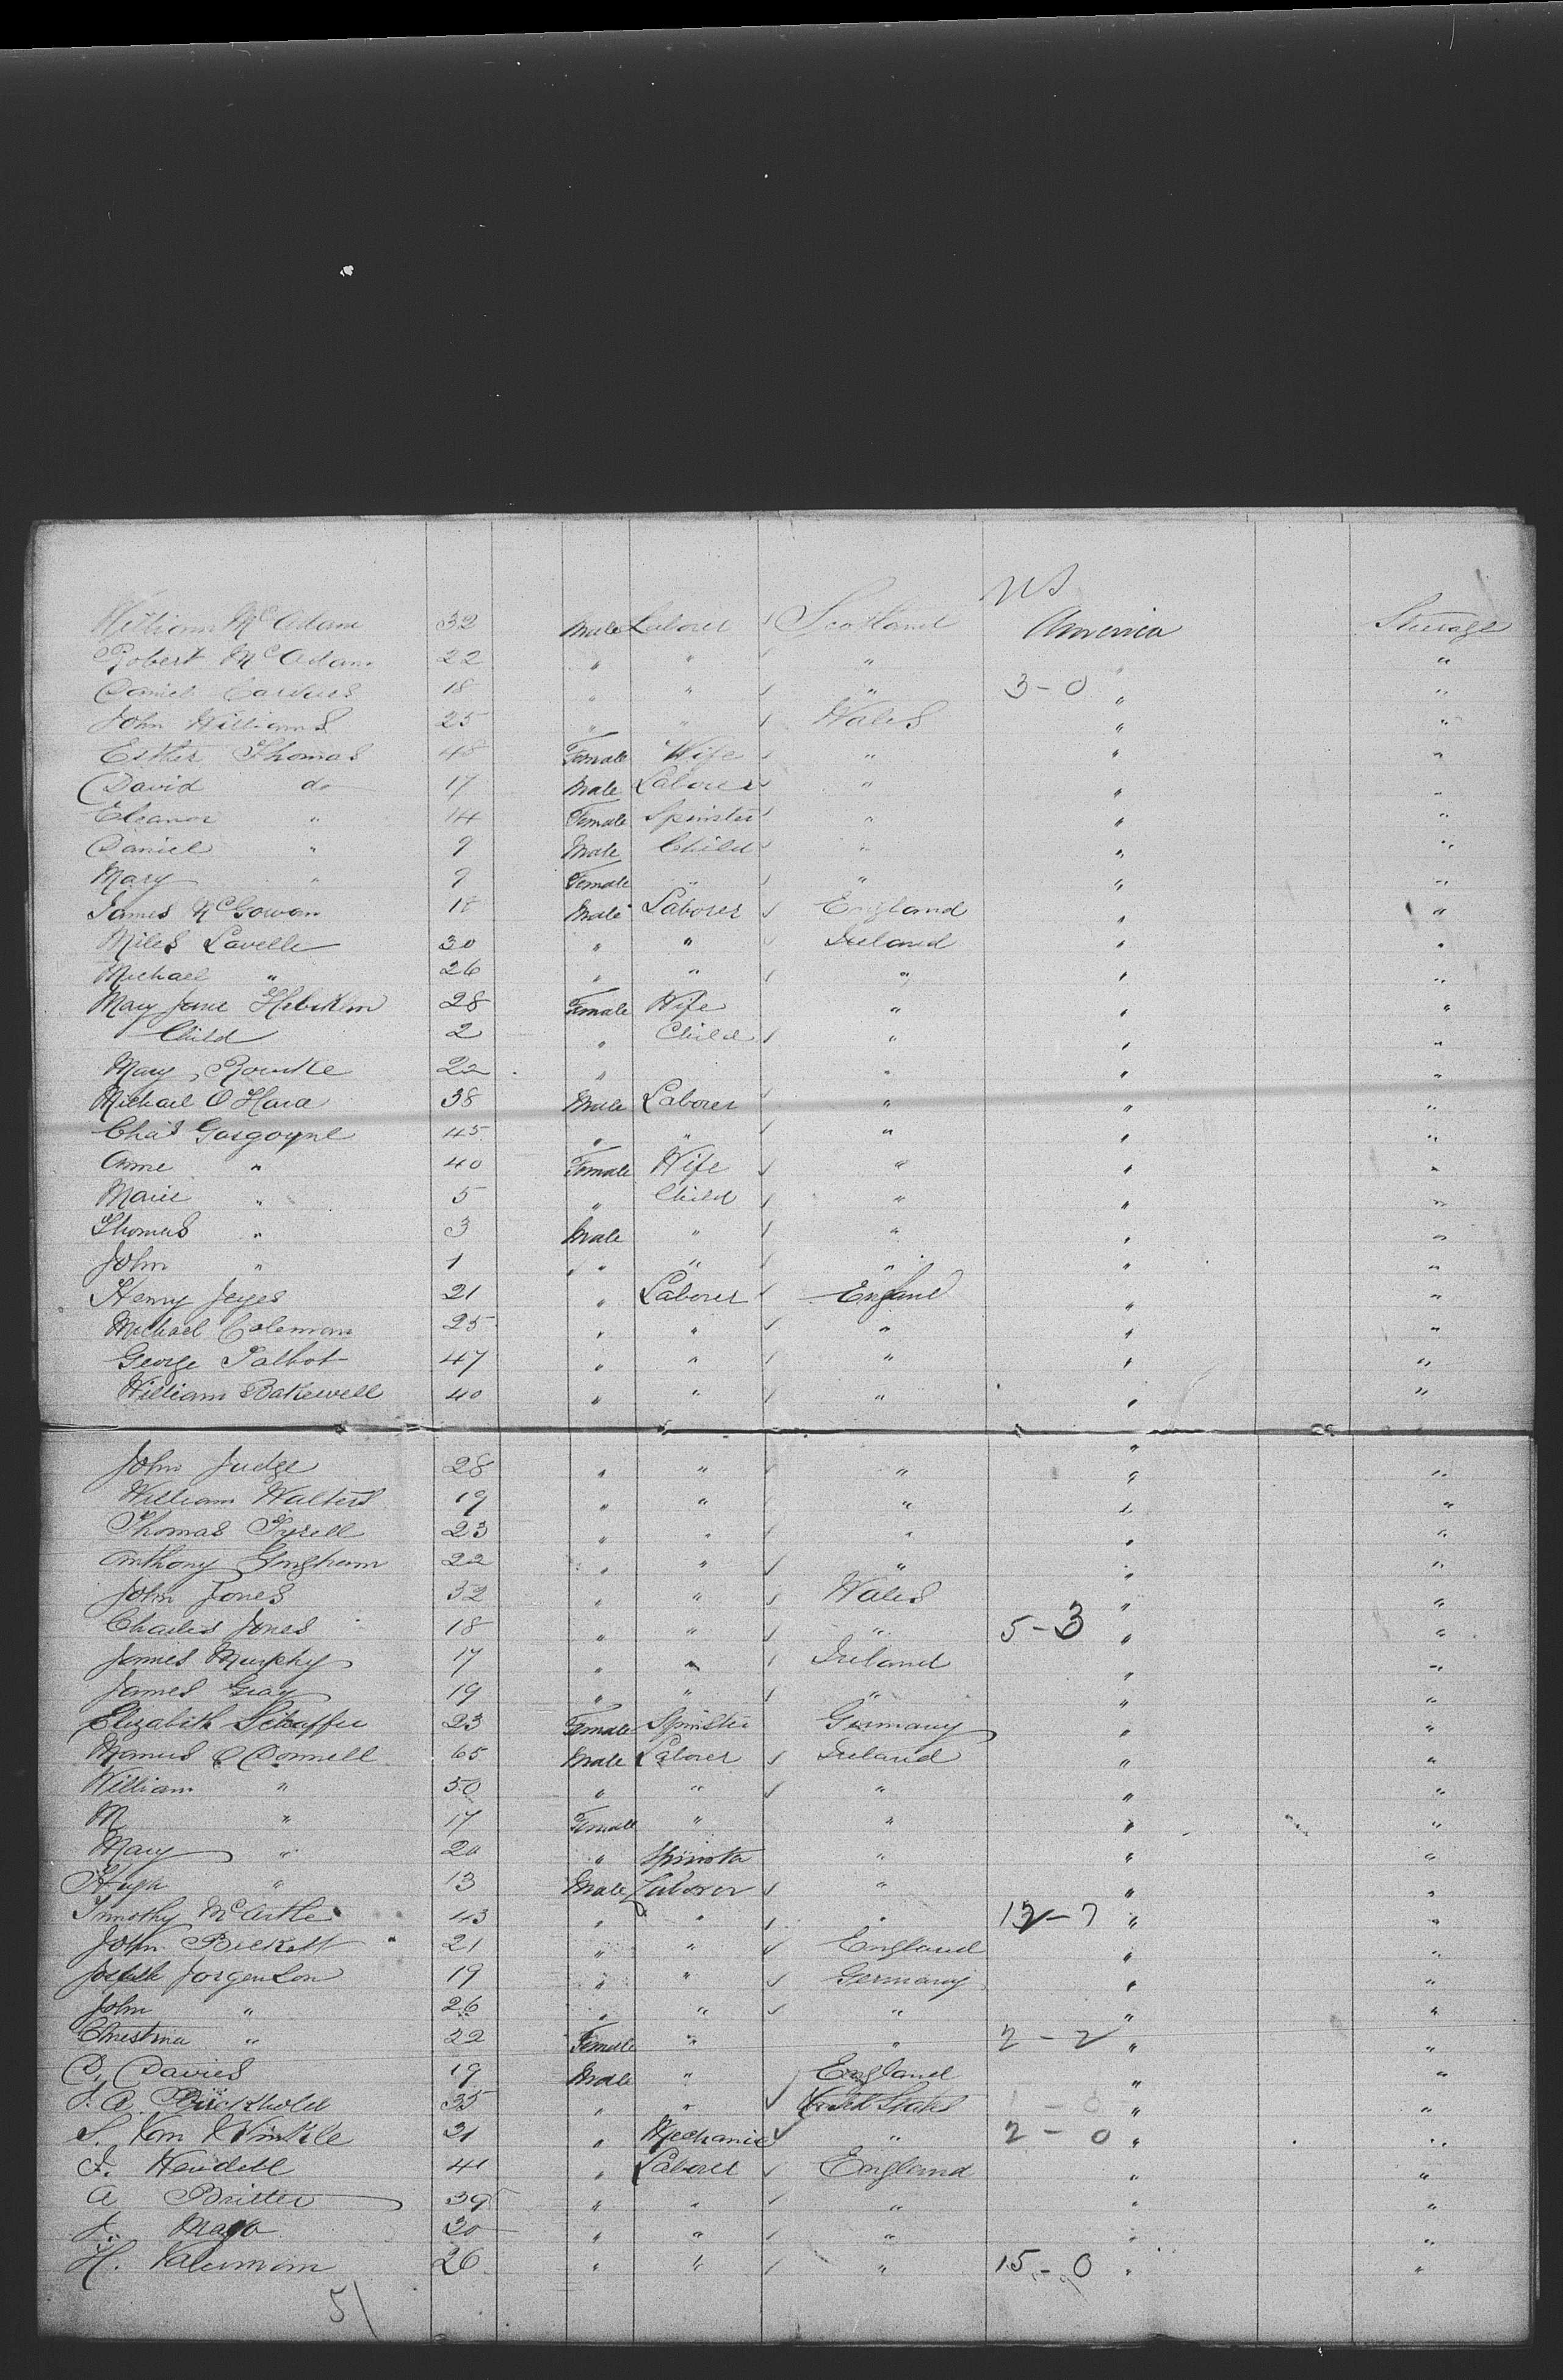 US
William McAdam 32 Male Laborer ✓ Scotland America Steerage
Robert McAdam 22 " " ✓ " " "
Daniel 18 " " ✓ " 3-0 " "
John Williams 25 " " ✓ Wales " "
Esther Thomas 48 Female Wife ✓ " " "
David do 17 Male Laborer ✓ " " "
Eleanor " 14 Female Spinster ✓ " " "
Daniel " 9 Male Child ✓ " " "
Mary " 9 Female " ✓ " " "
James McGowan 18 Male Laborer ✓ England " "
Miles Lavelle 30 " " ✓ Ireland " "
Michael " 26 " " ✓ " " "
Mary Jane 28 Female Wife " " "
Child 2 " Child ✓ " " "
Mary Rourke 22 " " " "
Michael O Hara 38 Male Laborer ✓ " " "
Chas Gasgoyne 45 " " ✓ " " "
Anne " 40 Female Wife ✓ " " "
Marie " 5 " Child ✓ " " "
Thomas " 3 Male " ✓ " " "
John " 1 " " ✓ " " "
Henry Jeyes 21 " Laborer ✓ England " "
Michael Coleman 25 " " ✓ " " "
George Talbot 47 " " ✓ " " "
William Bakewell 40 " " ✓ " " "
John Judge 28 " " ✓ " " "
William Walters 19 " " ✓ " " "
Thomas Tyrell 23 " " ✓ " " "
Anthony 22 " " ✓ " " "
John Jones 32 " " ✓ Wales " "
Charles Jones 18 " " ✓ " 5-3 " "
James Murphy 17 " " ✓ Ireland " "
James Gray 19 " " ✓ " " "
Elizabeth Schaffer 23 Female Spinster Germany " "
Manus O Donnell 65 Male Laborer ✓ Ireland " "
William " 50 " " ✓ " " "
M " 17 Female " " " "
Mary " 20 " Spinster " " "
" 13 Male Laborer ✓ " " "
Timothy 43 " " ✓ " 12-7 " "
John Beckett 21 " " ✓ England " "
Joseph Jorgenson 19 " " ✓ Germany " "
John " 26 " " ✓ " " "
Christina " 22 Female " " 2-2 " "
D. Davies 19 Male " ✓ England " "
35 " " ✓ United States " "
S. Van Winkle 21 " Mechanic ✓ " 2-0 " "
41 " Laborer ✓ England " "
A 39 " " ✓ " " "
30 " " ✓ " " "
H. 26 " " ✓ " 15-0 " "
51